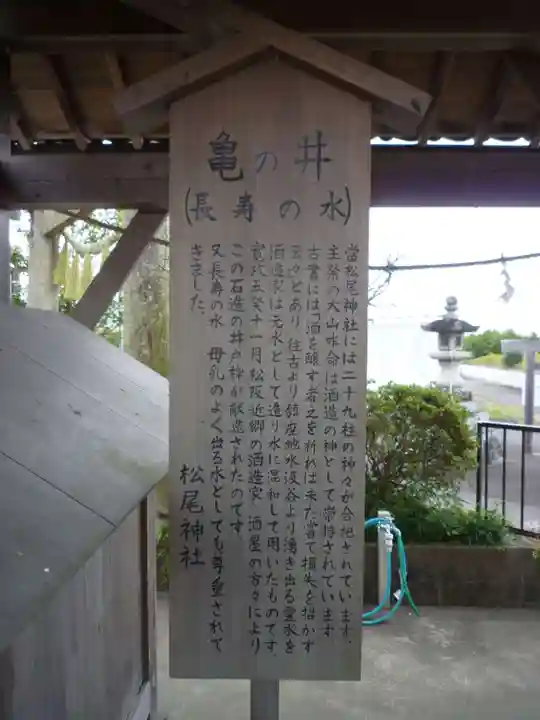 亀の井
(長寿の水)
當松尾神社には二十九柱の神々が合祀されています。
主祭の大山咋命は酒造の神として崇拝されています
古書には「酒を醸す者之を祈れば未だ嘗て損失を招かず
云々とあり 往古より鎮座地水浸谷より湧き出る霊水を
酒造家は元水として造り水に混和して用いたものです。
寛政五癸十一月松阪近郷の酒造家 酒屋の方々により
この石造の井戸枠が献造されたのです
又長寿の水 母乳のよく出る水としても尊重されて
きました。
松尾神社